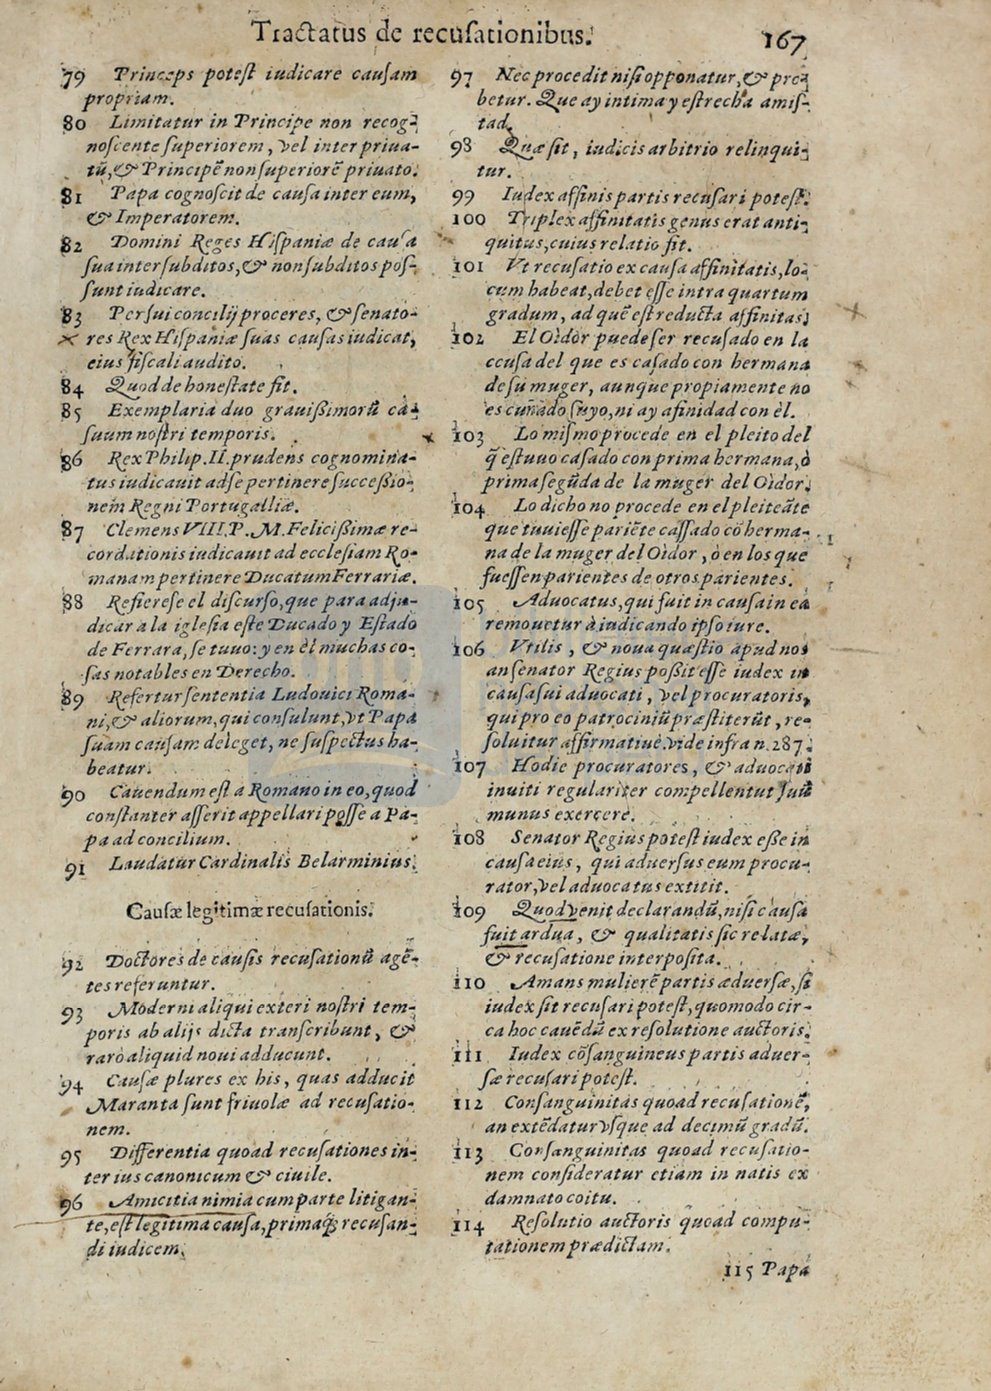 Tractatus de recusationibus. 167
79 Princeps potest iudicare causam
propriam.
80 Limitatur in Principe non recog-
noscente superiorem, vel inter priua-
tũ, & Principẽ non superiorẽ priuato.
81 Papa cognoscit de causa inter eum,
& Imperatorem.
82 Domini Reges Hispaniæ de causa
sua inter subditos, & non subditos pos-
sunt iudicare.
83 Per sui concilij proceres, & senato-
res Rex Hispaniæ suas causas iudicat,
eius fiscali audito.
84 Quod de honestate fit.
85 Exemplaria duo grauissimorũ ca-
suum nostri temporis.
86 Rex Philip. II. prudens cognomina-
tus iudicauit ad se pertinere successio-
nem Regni Portugalliæ.
87 Clemens VIII. P. M. Felicissimæ re-
cordationis iudicauit ad ecclesiam Ro-
manam pertinere Ducatum Ferrariæ.
88 Refierese el discurso, que para adju-
dicar a la iglesia este Ducado y Estado
de Ferrara, se tuuo: y en èl muchas co-
sas notables en Derecho.
89 Refertur sententia Ludouici Roma-
ni, & aliorum, qui consulunt, vt Papa
suam causam deleget, ne suspectus ha-
beatur.
90 Cauendum est a Romano in eo, quod
constanter asserit appellari posse a Pa-
pa ad concilium.
91 Laudatur Cardinalis Belarminius.
Causæ legitimæ recusationis.
92 Doctores de causis recusationũ agẽ-
tes referuntur.
93 Moderni aliqui exteri nostri tem-
poris ab alijs dicta transcribunt, &
rarò aliquid noui adducunt.
94 Causæ plures ex his, quas adducit
Maranta sunt friuolæ ad recusatio-
nem.
95 Differentia quoad recusationes in-
ter ius canonicum & ciuile.
96 Amicitia nimia cum parte litigan-
te, est legitima causa, primaq; recusan-
di iudicem.
97 Nec procedit nisi opponatur, & pro-
betur. Que ay intima y estrecha amis-
tad.
98 Quæ sit, iudicis arbitrio relinqui-
tur.
99 Iudex affinis partis recusari potest.
100 Triplex affinitatis genus erat anti-
quitus, cuius relatio fit.
101 Vt recusatio ex causa affinitatis, lo-
cum habeat, debet esse intra quartum
gradum, ad quẽ est reducta affinitas.
102 El Oìdor puede ser recusado en la
ccusa del que es casado con hermana
de su muger, aunque propiamente no
es cuñado suyo, ni ay afinidad con èl.
103 Lo mismo procede en el pleito del
q̃ estuuo casado con prima hermana, ò
prima segũda de la muger del Oìdor.
104 Lo dicho no procede en el pleiteãte
que tuuiesse pariẽte cassado cõ herma-
na de la muger del Oìdor, ò en los que
fuessen parientes de otros parientes.
105 Aduocatus, qui fuit in causa in ea
remouetur à iudicando ipso iure.
106 Vtilis, & noua quæstio apud nos
an senator Regius possit esse iudex in
causa sui aduocati, vel procuratoris,
qui pro eo patrociniũ præstiterũt, re-
soluitur affirmatiuè, vide infra n. 287.
107 Hodie procuratores, & aduocati
inuiti regulariter compellentut suũ
munus exercere.
108 Senator Regius potest iudex esse in
causa eius, qui aduersus eum procu-
rator, vel aduocatus extitit.
109 Quod venit declarandũ, nisi causa
fuit ardua, & qualitatis sic relatæ,
& recusatione interposita.
110 Amans mulierẽ partis æduersæ, si
iudex sit recusari potest, quomodo cir-
ca hoc cauẽdũ ex resolutione auctoris.
111 Iudex cõsanguineus partis aduer-
sæ recusari potest.
112 Consanguinitas quoad recusationẽ,
an extẽdatur vsque ad decimũ gradũ.
113 Consanguinitas quoad recusatio-
nem consideratur etiam in natis ex
damnato coitu.
114 Resolutio auctoris quoad compu-
tationem prædictam.
115 Papa